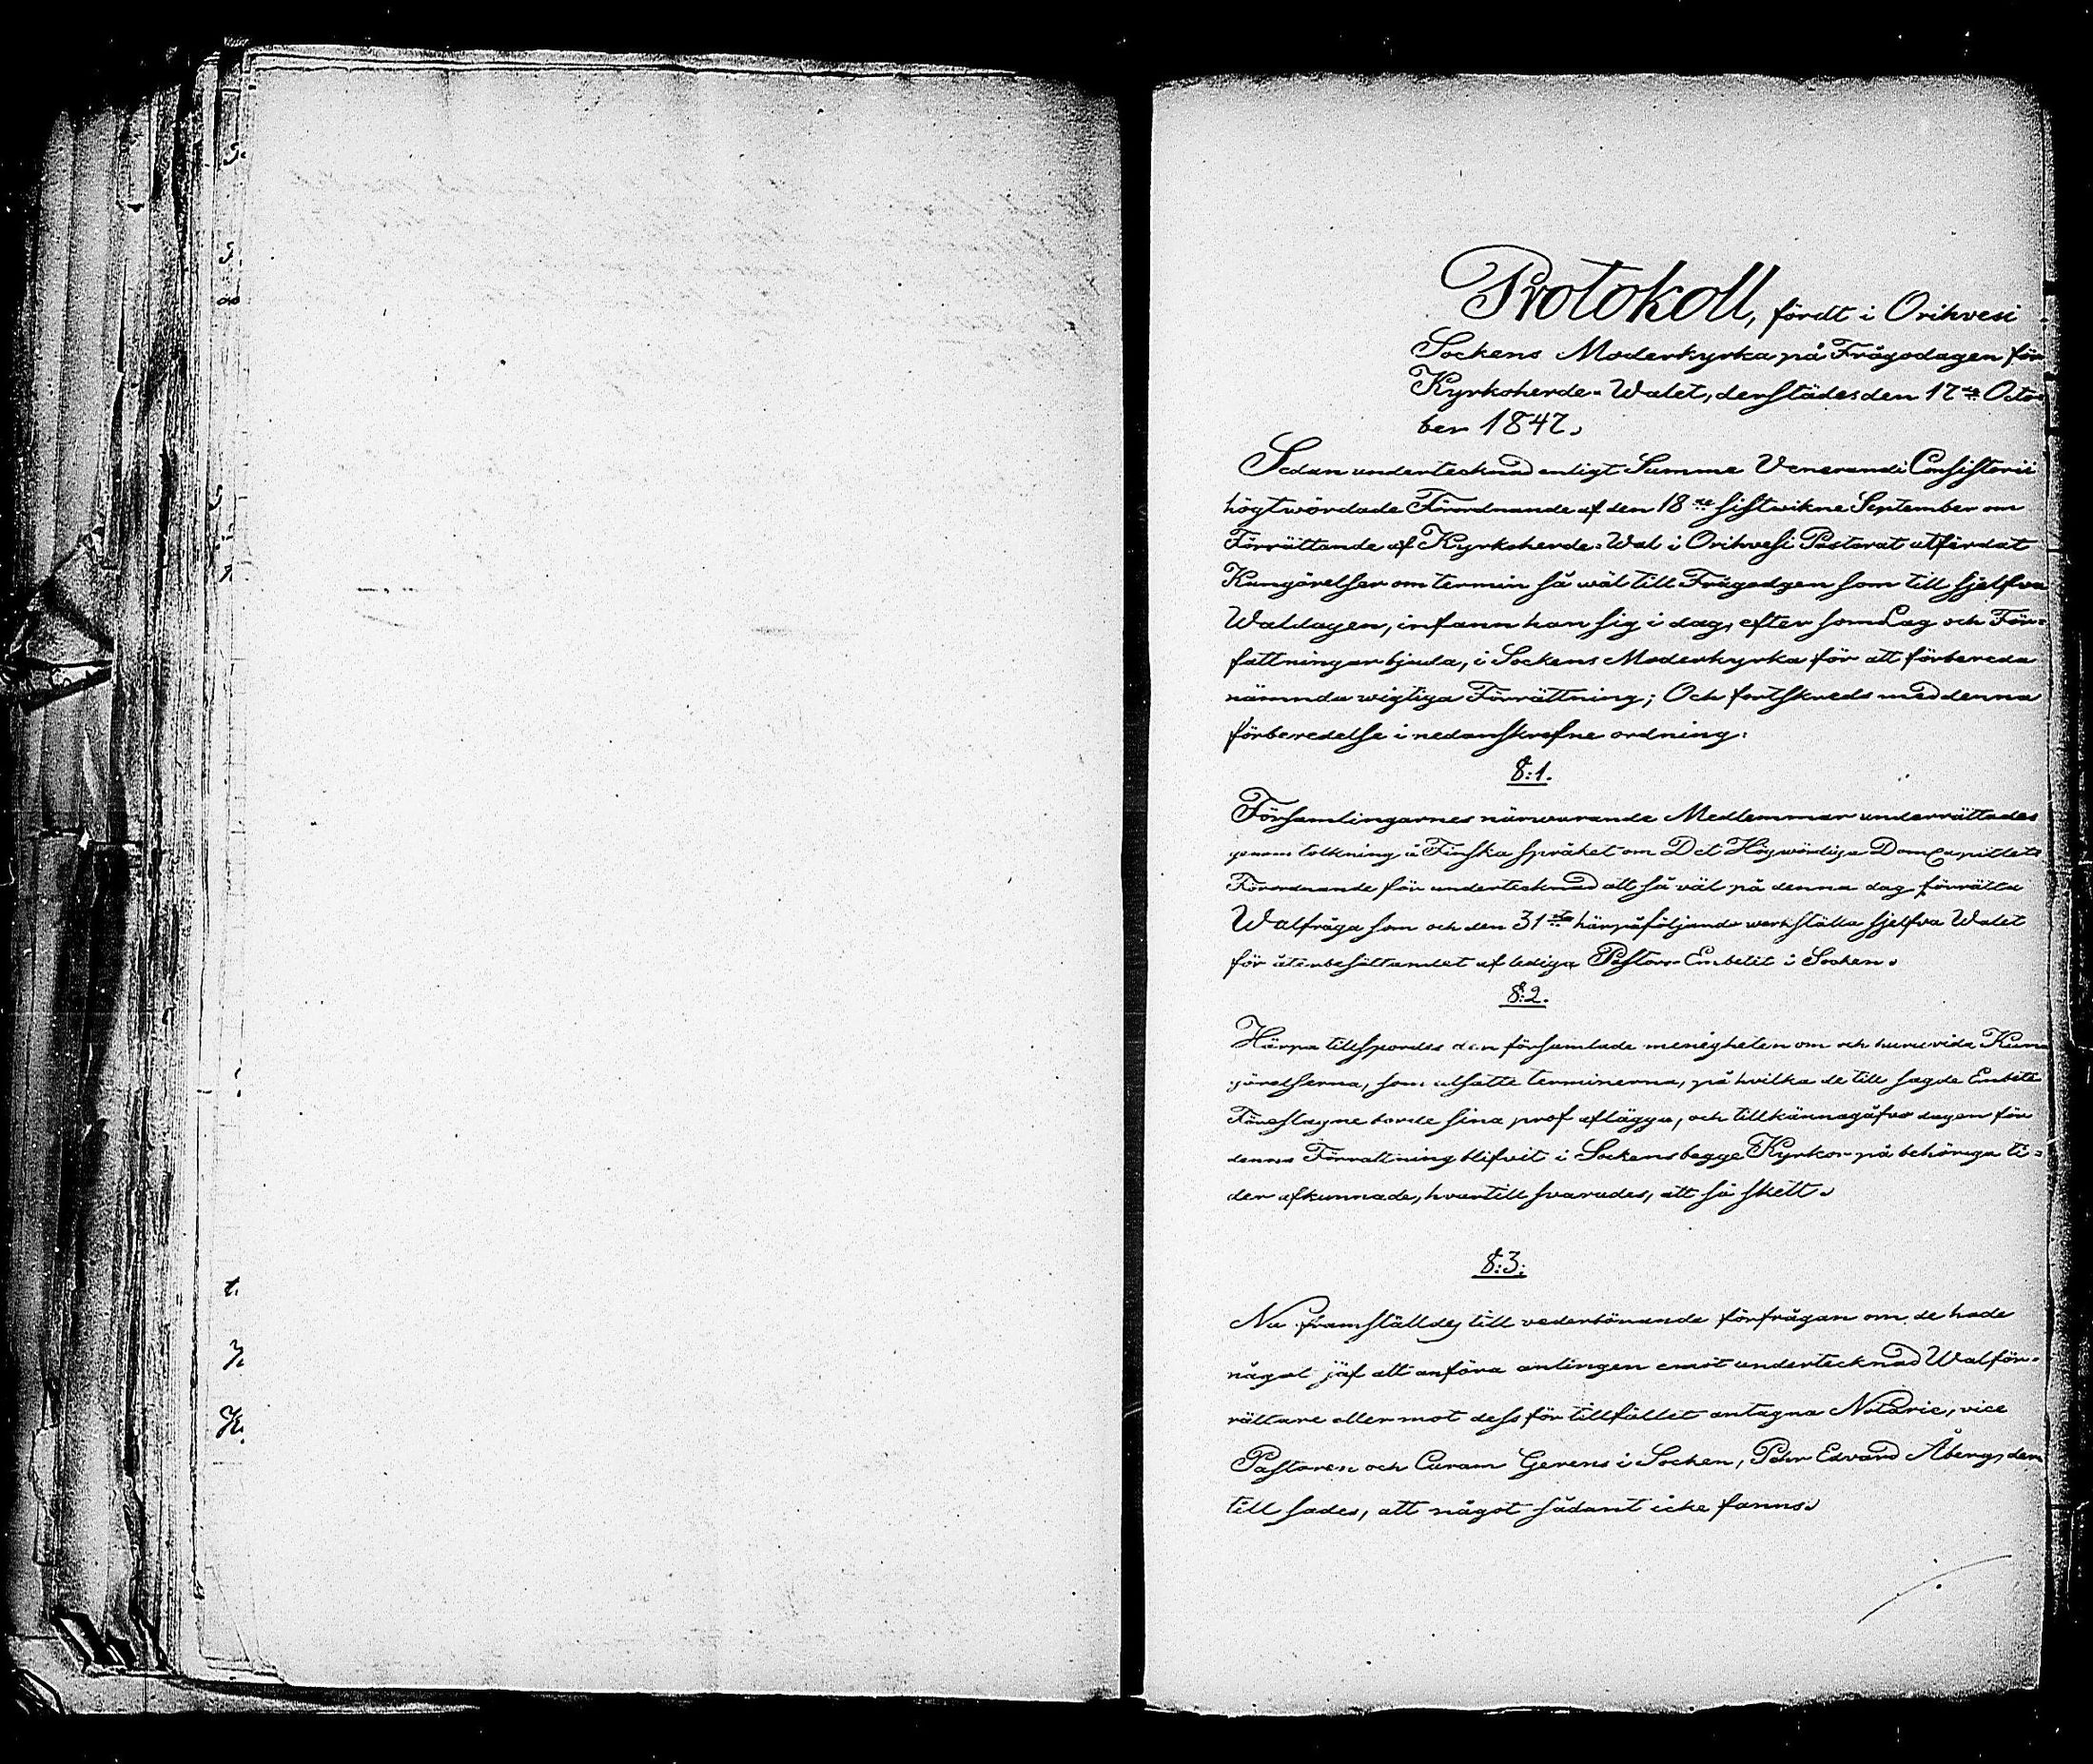 Protokoll, fördt i Orihvesi
Sockens Moderkyrka på Frågodagen för
Kyrkoherde-Walet, derstädes den 17de Octo-
ber 1847.
Sedan undertecknad enligt Summe Venerandi Consistorii
högtwördade Förordnande af den 18de sistwikne September om
Förrättande af Kyrkoherde-Wal i Orihvesi Pastorat utfärdat
Kungörelser om termin så wäl till Frågodgen som till sjelfva
Waldagen, infann han sig i dag, efter som Lag och För-
fattningar bjuda, i Sockens Moderkyrka för att förbereda
nämnda wigtiga Förrättning; Och fortskreds med denna
förberedelse i nedanskrefne ordning:
§:1.
Församlingarnes närwarande Medlemmar underrättades
genom tolkning å Finska språket om Det Högwördiga DomCapitlets
Förordnande för undertecknad att så väl på denna dag förrätta
Walfråga som och den 31sta härpåföljande werkställa sjelfva Walet
för återbesättandet af lediga Pastors-Embetet i Socken.
§:2.
Härpå tillspordes den församlade menigheten om och huruvida Kun-
görelserna, som utsatte terminerna, på hvilka de till sagde Embete
Föreslagne borde sina prof aflägga, och tillkännagåfvo dagen för
denna Förrattning blifvit i Sockens begge Kyrkor på behöriga ti-
der afkunnade, hvartill svarades, att så skett.
§:3:
Nu framställdes till vederbönande förfrågan om de hade
något jäf att anföra antingen emot undertecknad Walför-
rättare eller mot dess för tillfället antagna Notarie, vice
Pastoren och Curam Gerens i Socken, Pehr Edvard Åberg, der
till sades, att något sådant icke fanns.